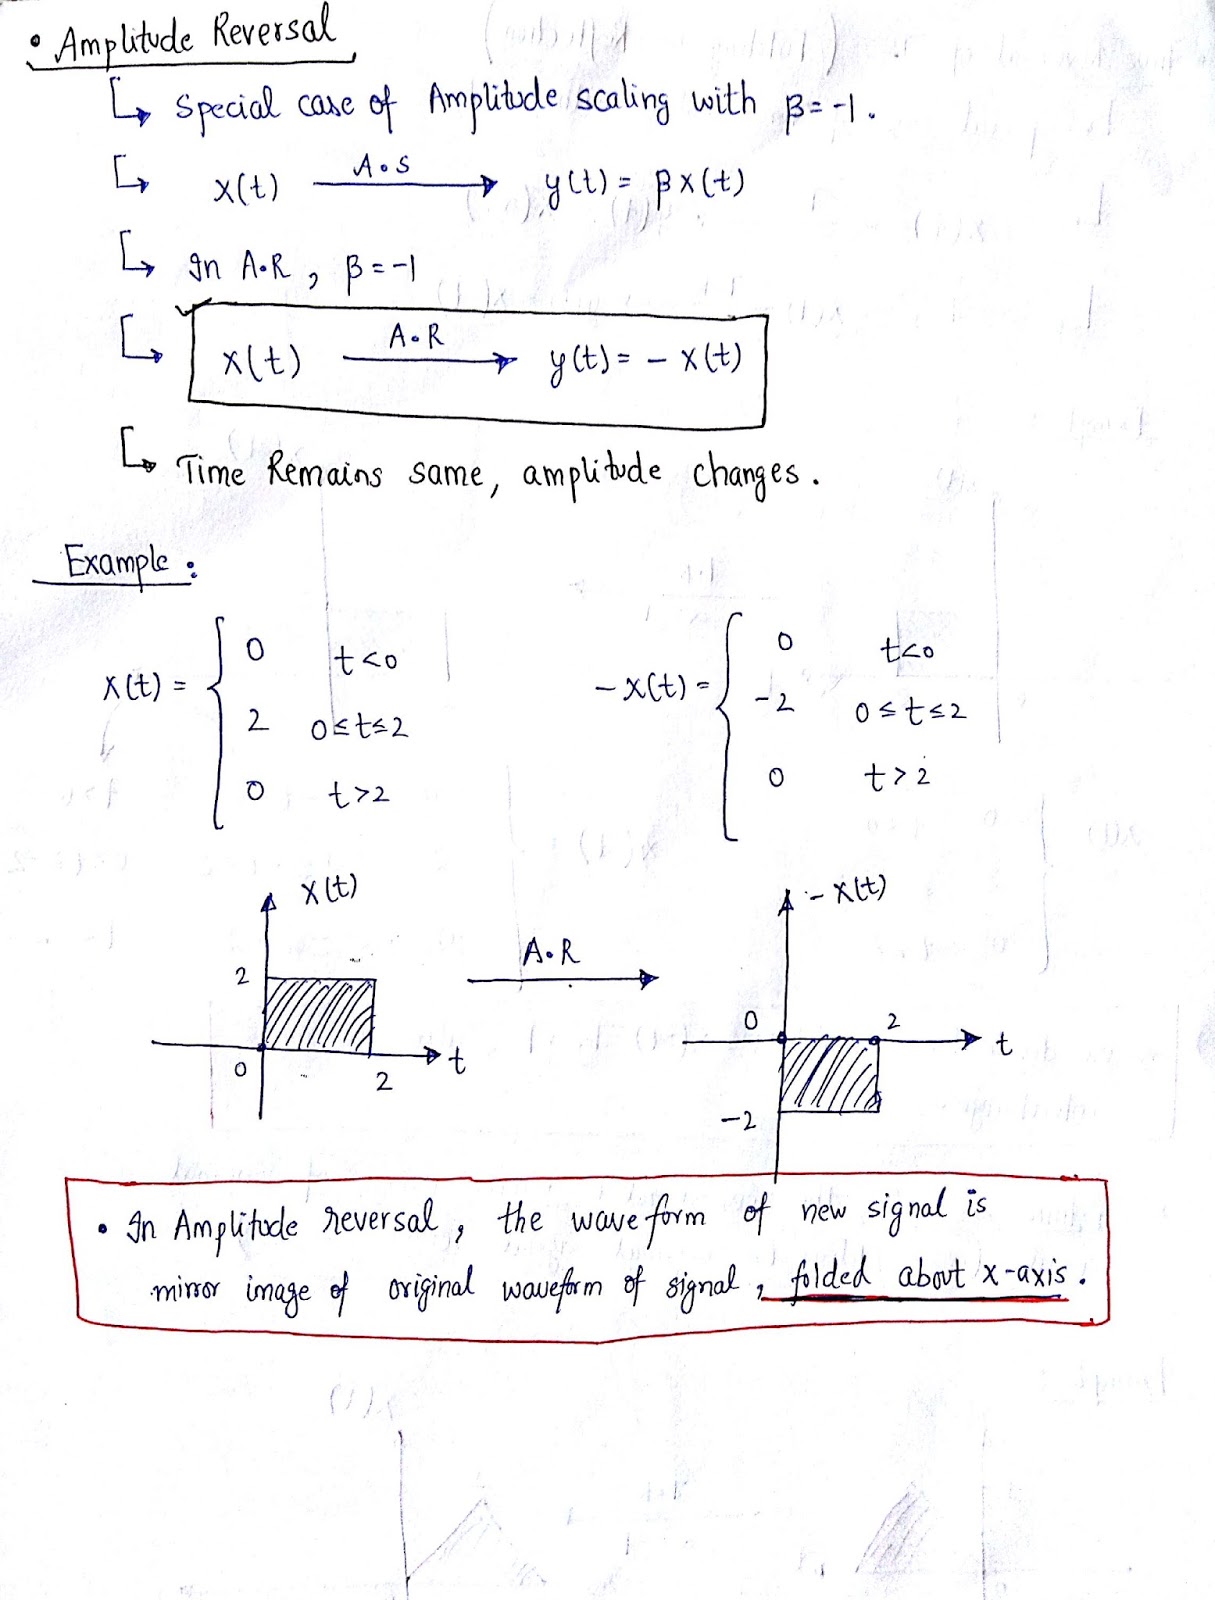 • Amplitude Reversal
↳ Special case of Amplitude scaling with β = -1.
↳ x(t) A.S → y(t) = β x(t)
↳ In A.R, β = -1
↳ x(t) A.R → y(t) = - x(t)
↳ Time Remains same, amplitude changes.
Example :
x(t) = { 0 t<0
2 0≤t≤2
0 t>2
-x(t) = { 0 t<0
-2 0≤t≤2
0 t>2
x(t)
2
0
2
t
A.R
- x(t)
0
2
t
-2
• In Amplitude reversal, the waveform of new signal is
mirror image of original waveform of signal, folded about x-axis.